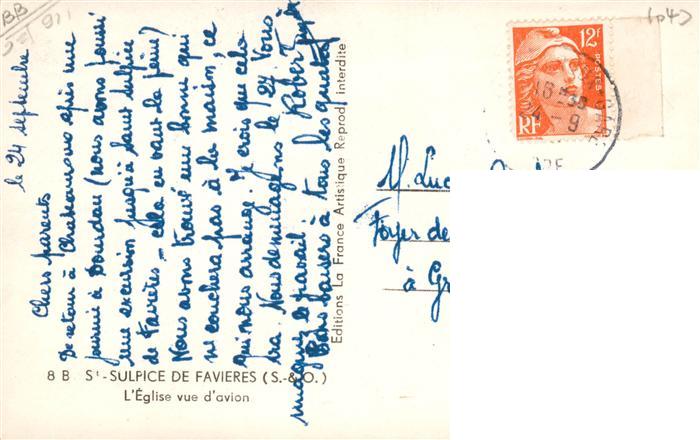 le 24 septembre
Chers parents
De retour à Chateauroux après une
journée à Dourdan (nous avons poussé
une excursion jusqu'à Saint Sulpice
de Favières - cela en vaut la peine)
Nous avons trouvé une bonne qui
ne couchera pas à la maison, ce
qui nous arrange. Je crois que cela
ira. Nous déménageons le 27. Vous
le travail.
Bons baisers à tous les quatre
Robert
8 B St-SULPICE DE FAVIERES (S.-&O.)
L'Église vue d'avion
Editions La France Artistique Reprod. interdite
12F
POSTES
RF
16 30
-9
GARE
M. Luc
Foyer de
à Gr
(p4)
BB
911